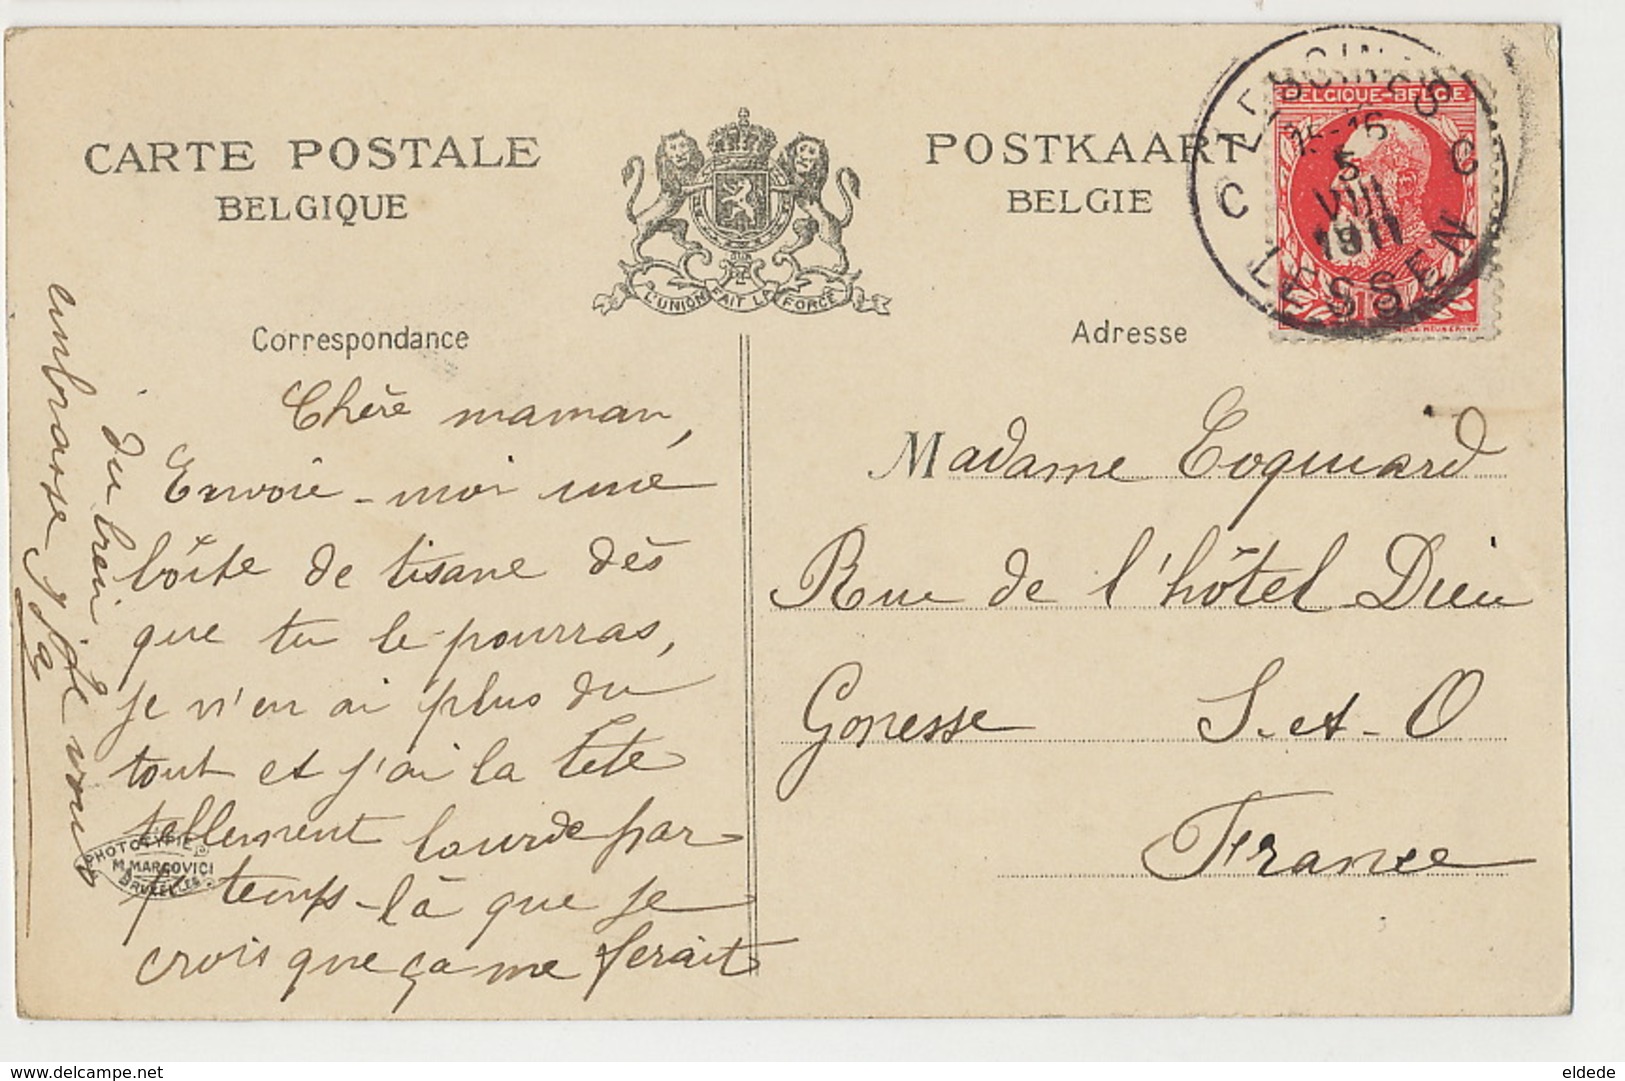 CARTE POSTALE
BELGIQUE
POSTKAART
BELGIE
L'UNION FAIT LA FORCE
BELGIQUE-BELGIE
LESSINES
C C
15-16
5
VIII
1911
LESSEN
Correspondance
Adresse
Chère maman,
Envoie-moi une
boîte de tisane dès
que tu le pourras,
je n'en ai plus du
tout et j'ai la tête
tellement lourde par
temps-là que je
crois que ça me ferait
du bien. Je vous
embrasse
Madame Coquuard
Rue de l'hôtel Dieu
Gonesse S-et-O
France
PHOTOTYPIE
M. MARCOVICI
BRUXELLES
eldede